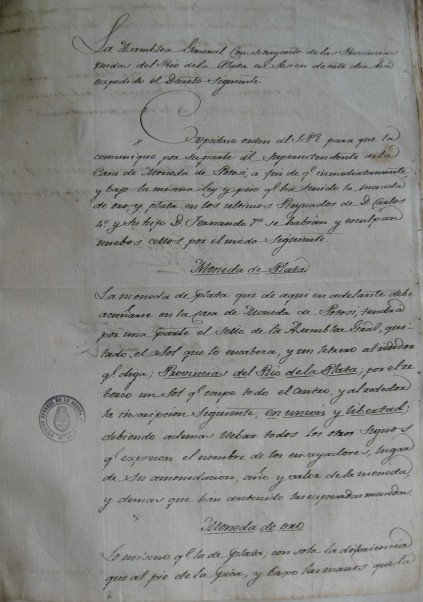 La Asamblea General Constituyente de las Provincias
Unidas del Rio de la Plata en Sesion de este dia ha
expedido el Decreto Siguiente
Expidase orden al S.P.E. para que la
comunique por su parte al Superintendente de la
Casa de Moneda de Potosi, a fin de q.e inmediatamente
y bajo la misma ley y peso q.e ha tenido la moneda
de oro y plata en los ultimos Reynados de D. Carlos
4.º y su hijo D. Fernando 7.º se habran y esculpan
nuebos cellos por el modo Siguiente.
Moneda de Plata
La moneda de plata que de aqui en adelante debe
acuñarse en la casa de Moneda de Potosi, tendra
por una parte el Sello de la Asamblea Gral, qui-
tado el Sol que lo encabeza, y un letrero al rededor
q.e diga; Provincias del Rio de la Plata; por el re-
berso un Sol q.e ocupe todo el Centro, y al rededor
la inscripcion Siguiente; en union y libertad;
debiendo ademas llebar todos los otros Signos
q.e expresen el nombre de los ensayadores, lugar
de su amonedacion, año y valor de la moneda
y demas que han contenido las expresadas monedas.
Moneda de oro
Lo mismo q.e la de Plata, con sola la diferiencia
que al pie de la Pica, y bajo las manos que la